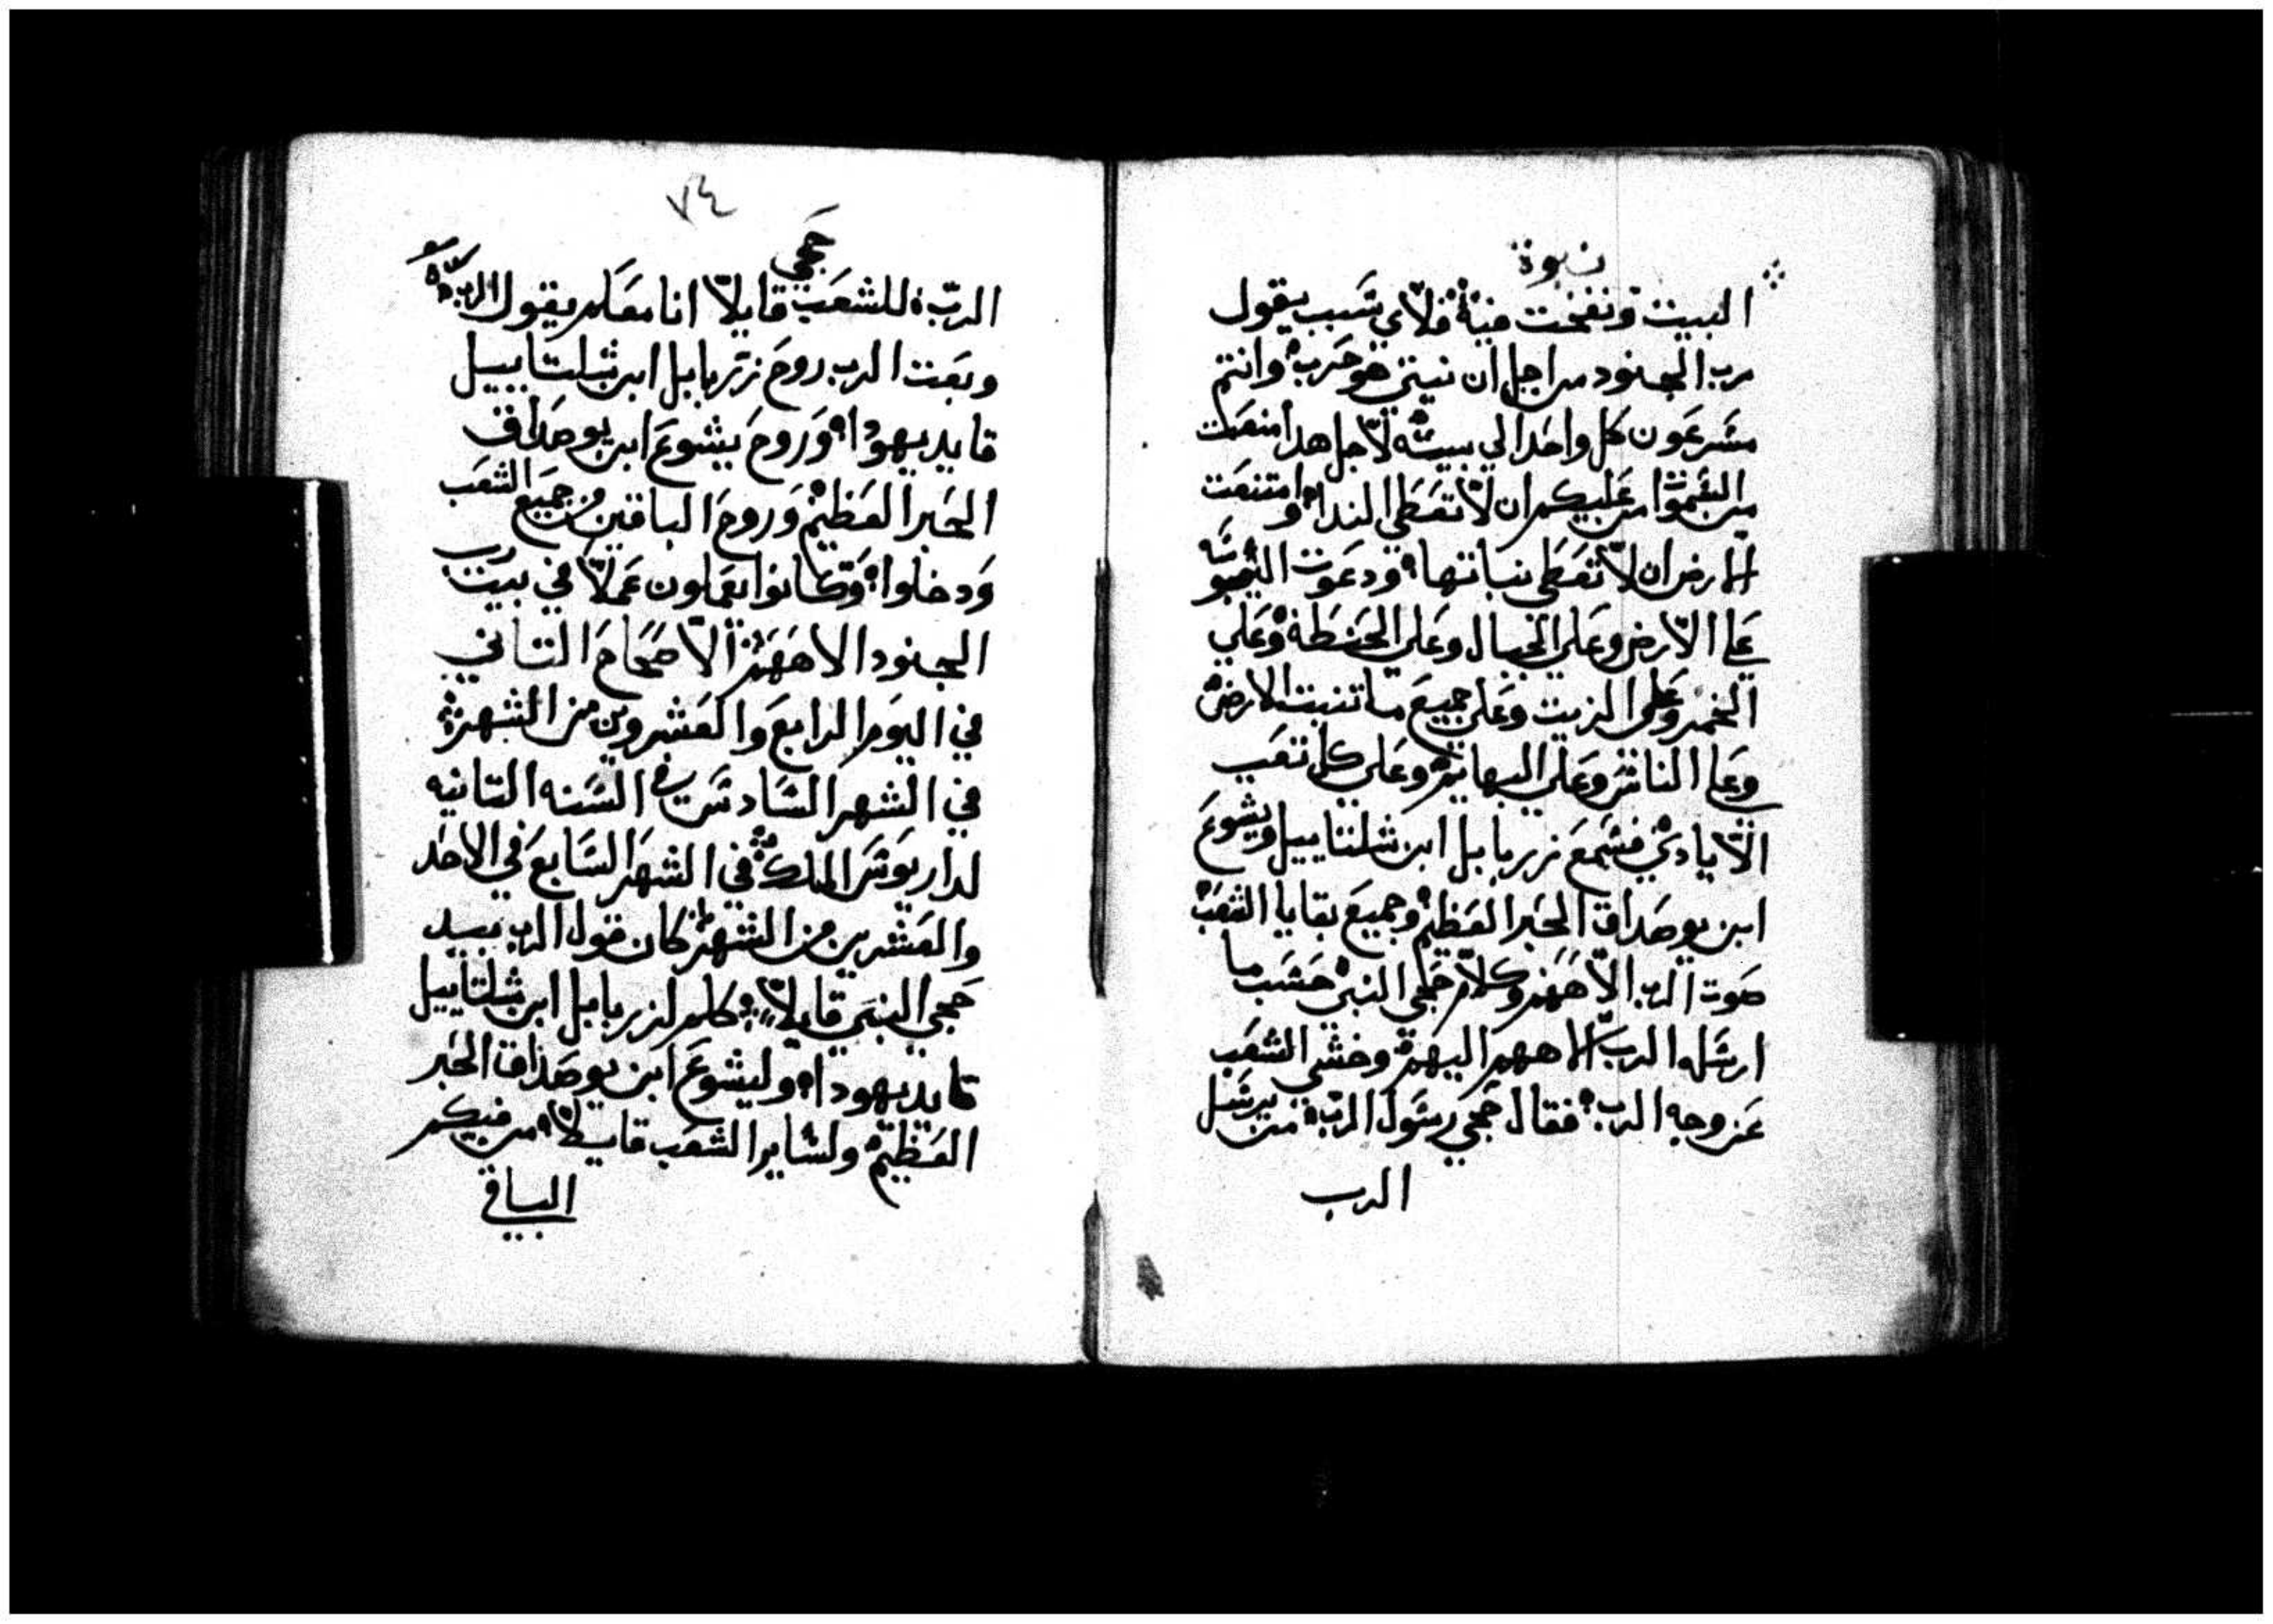 نبوة
البيت ونفخت فيه فلاي سبب يقول
رب الجنود من اجل ان بيتي هو خرب وانتم
مسرعون كل واحد الي بيته لاجل هدا منعت
من السموا من عليكم ان لا تعطي الندا وامتنعت
الارض ان لا تعطي نباتها ودعوت
علي الارض وعلي الجبال وعلي الحنطه وعلي
الخمر وعلي الزيت وعلي جميع ما تنبت الارض
وعلي الناس وعلي البهايم وعلي كل تعب
الايادي فسمع زربابل ابن شلتاييل ويشوع
ابن يوصداق الحبر العظيم وجميع بقايا الشعب
صوت الرب الاههم وكلام حجي النبي حسب ما
ارسله الرب الاههم اليهم وخشي الشعب
عن وجه الرب فقال حجي رسول الرب من يرسل
الرب
٧٤
حجي
الرب للشعب قايلا انا معكم يقول الرب
وبعت الرب روح زربابل ابن شلتاييل
قايد يهودا وروح يشوع ابن يوصداق
الحبر العظيم وروح الباقين من جميع الشعب
ودخلوا وكانوا يعملون عملا في بيت رب
الجنود الاههم الاصحاح التاني
في اليوم الرابع والعشرين من الشهر
في الشهر السادس في السنه التانيه
لداريوش الملك في الشهر السابع في الاحد
والعشرين من الشهر كان قول الرب بيد
حجي النبي قايلا كلم لزربابل ابن شلتاييل
قايد يهودا وليشوع ابن يوصداق الحبر
العظيم ولساير الشعب قايلا من فيكم
الباقي